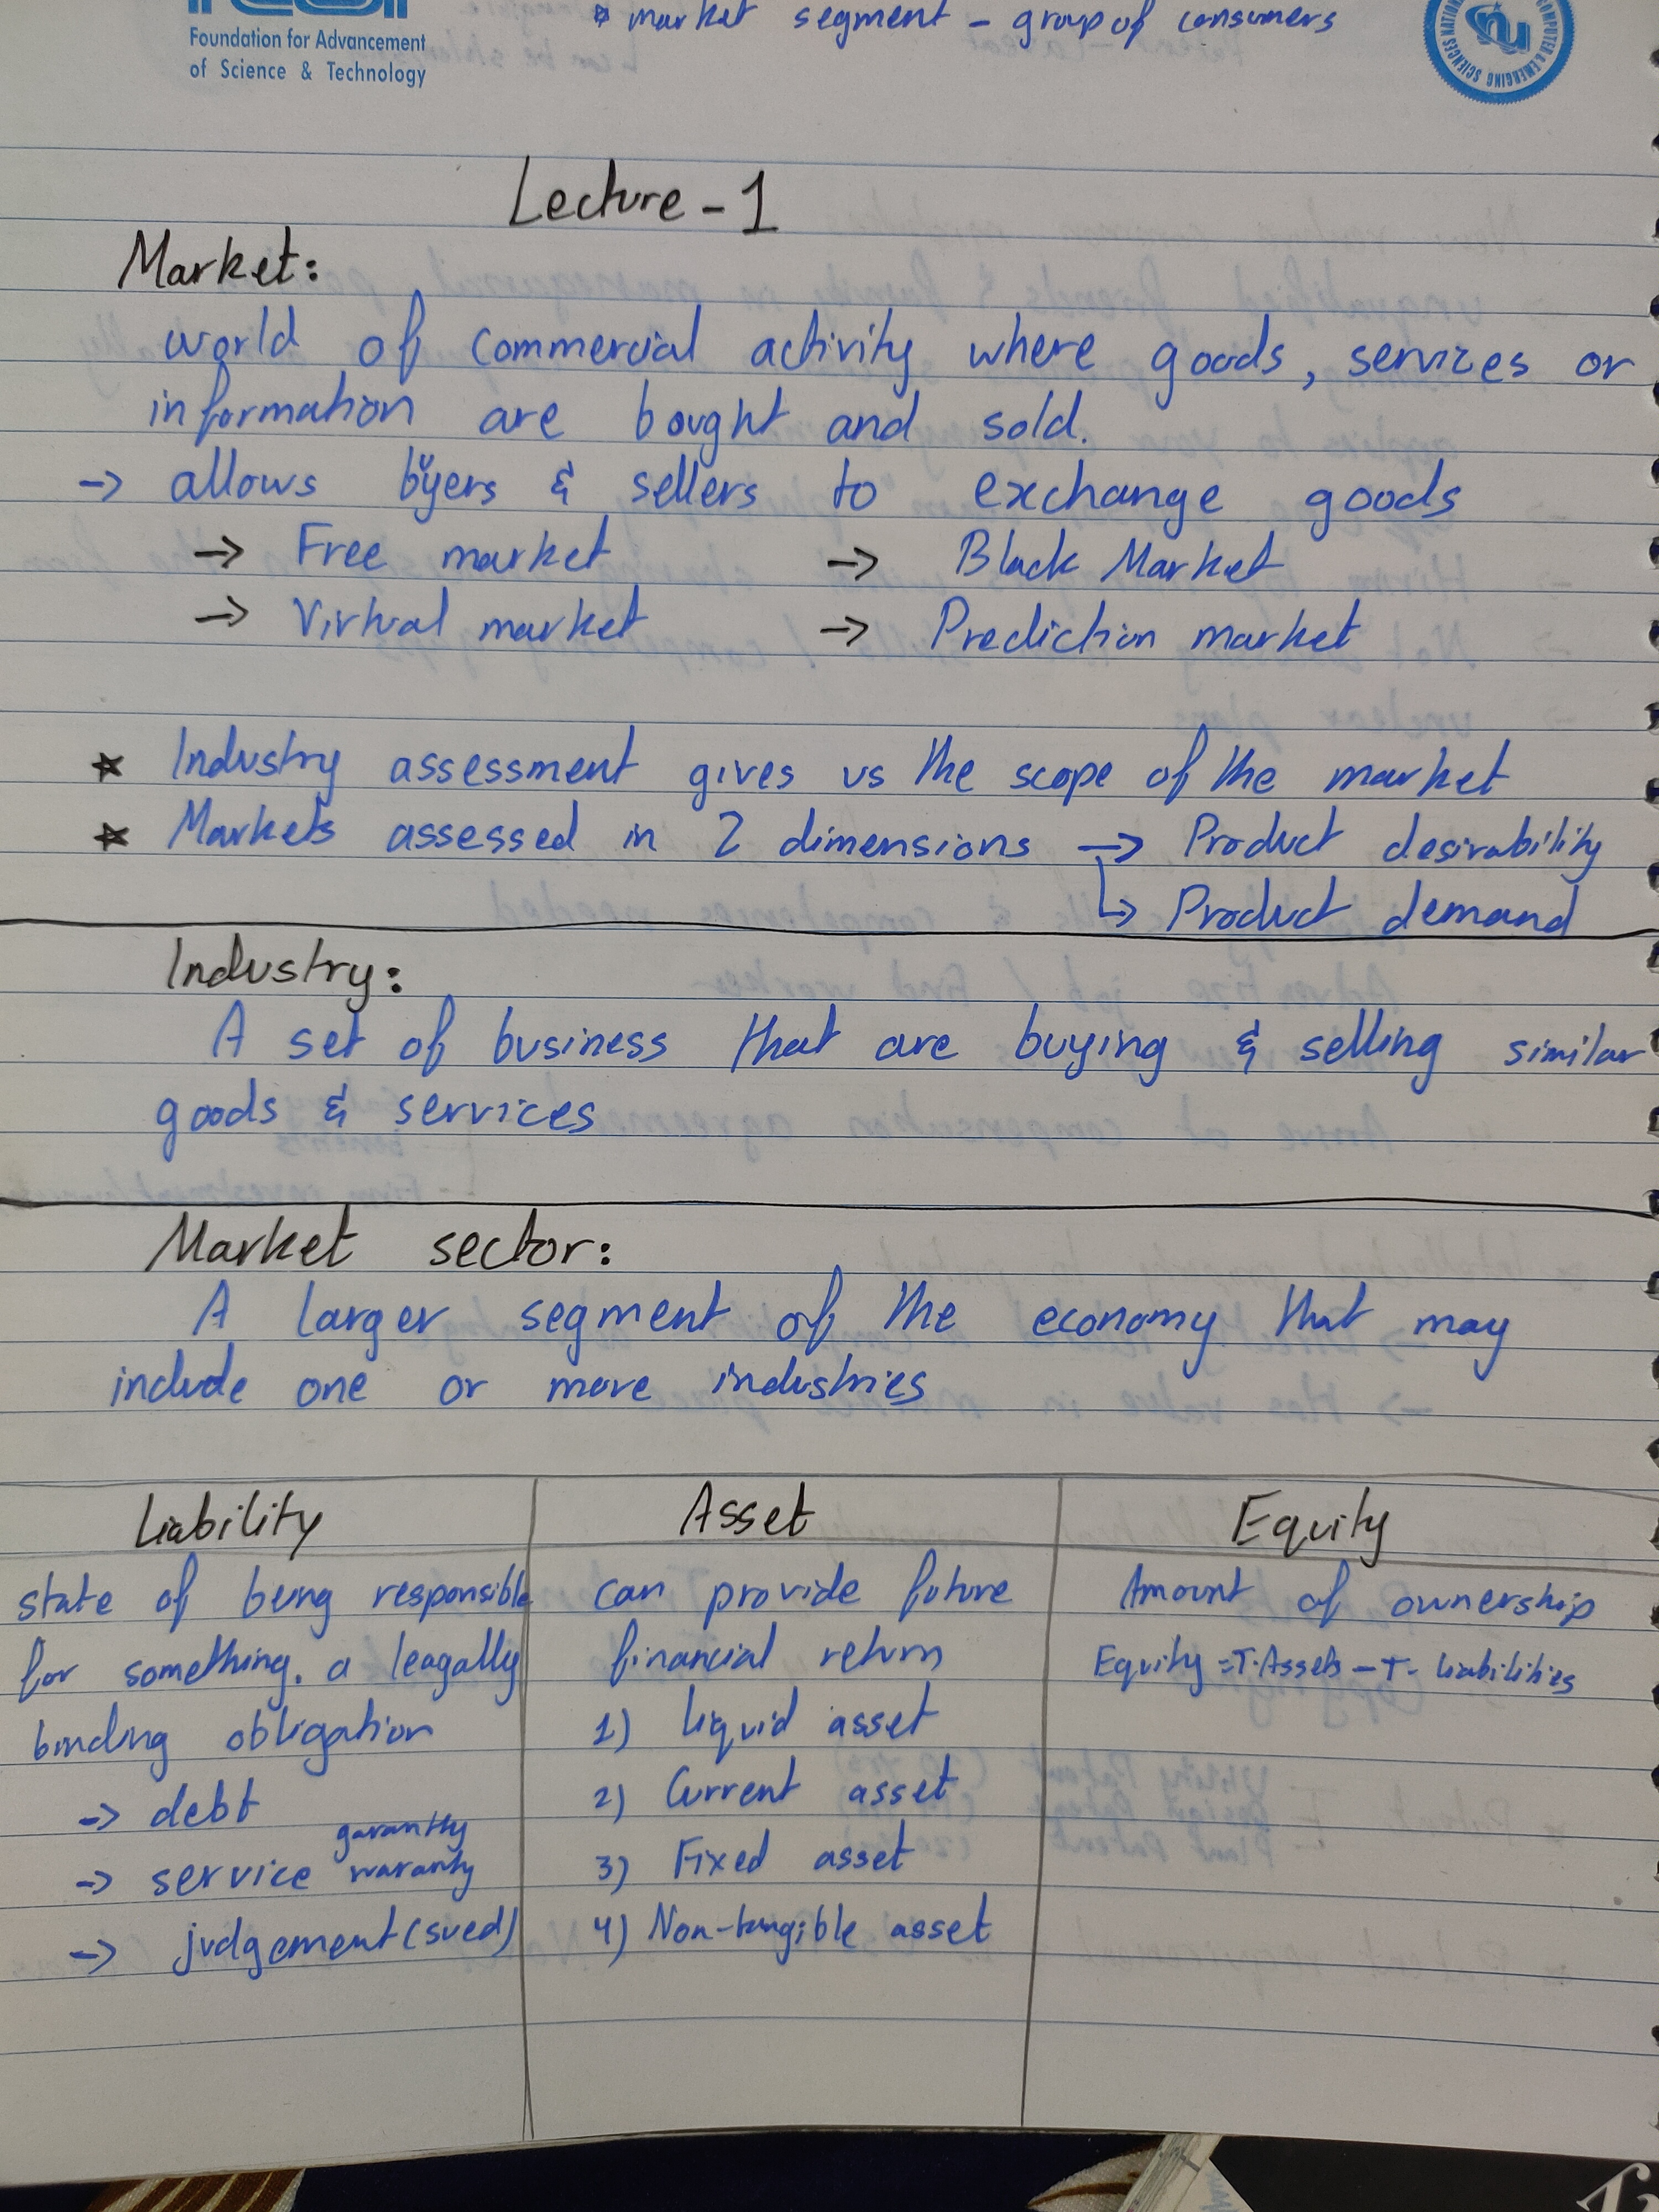 Foundation for Advancement
of Science & Technology
* market segment - group of consumers
NATIONAL COMPUTER & EMERGING SCIENCES
nu
Lecture - 1
Market:
world of commercial activity where goods, services or
information are bought and sold.
→ allows buyers & sellers to exchange goods
→ Free market → Black Market
→ Virtual market → Prediction market
* Industry assessment gives us the scope of the market
* Markets assessed in 2 dimensions → Product desirability
↳ Product demand
Industry:
A set of business that are buying & selling similar
goods & services
Market sector:
A larger segment of the economy that may
include one or more industries
Liability
state of being responsible
for something. a leagally
binding obligation
→ debt
→ service garantty waranty
→ judgement (sued)
Asset
can provide future
financial return
1) Liquid asset
2) Current asset
3) Fixed asset
4) Non-tangible asset
Equity
Amount of ownership
Equity = T. Assets - T. Liabilities